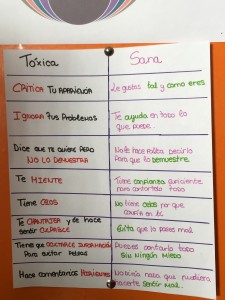 Tóxica
Sara
CRÍTICA TU APARIENCIA
Le gustas tal y como eres
IGNORA Tus Problemas
Te ayuda en todo lo
que puede.
Dice que te quiere PERO
NO LO DEMUESTRA
No le hace falta decirlo
Para que lo demuestre.
Te MIENTE
Tiene confianza suficiente
para contartelo todo
Tiene CELOS
No tiene celos por que
confía en ti
Te CHANTAJEA y te hace
sentir CULPABLE
Evita que lo pases mal
Tienes que CONTROLAR INFORMACIÓN
Para evitar peleas
Puedes contarlo todo
Sin Ningún Miedo
Hace comentarios Hirientes
No diría nada que pudiera
hacerte sentir Mal.